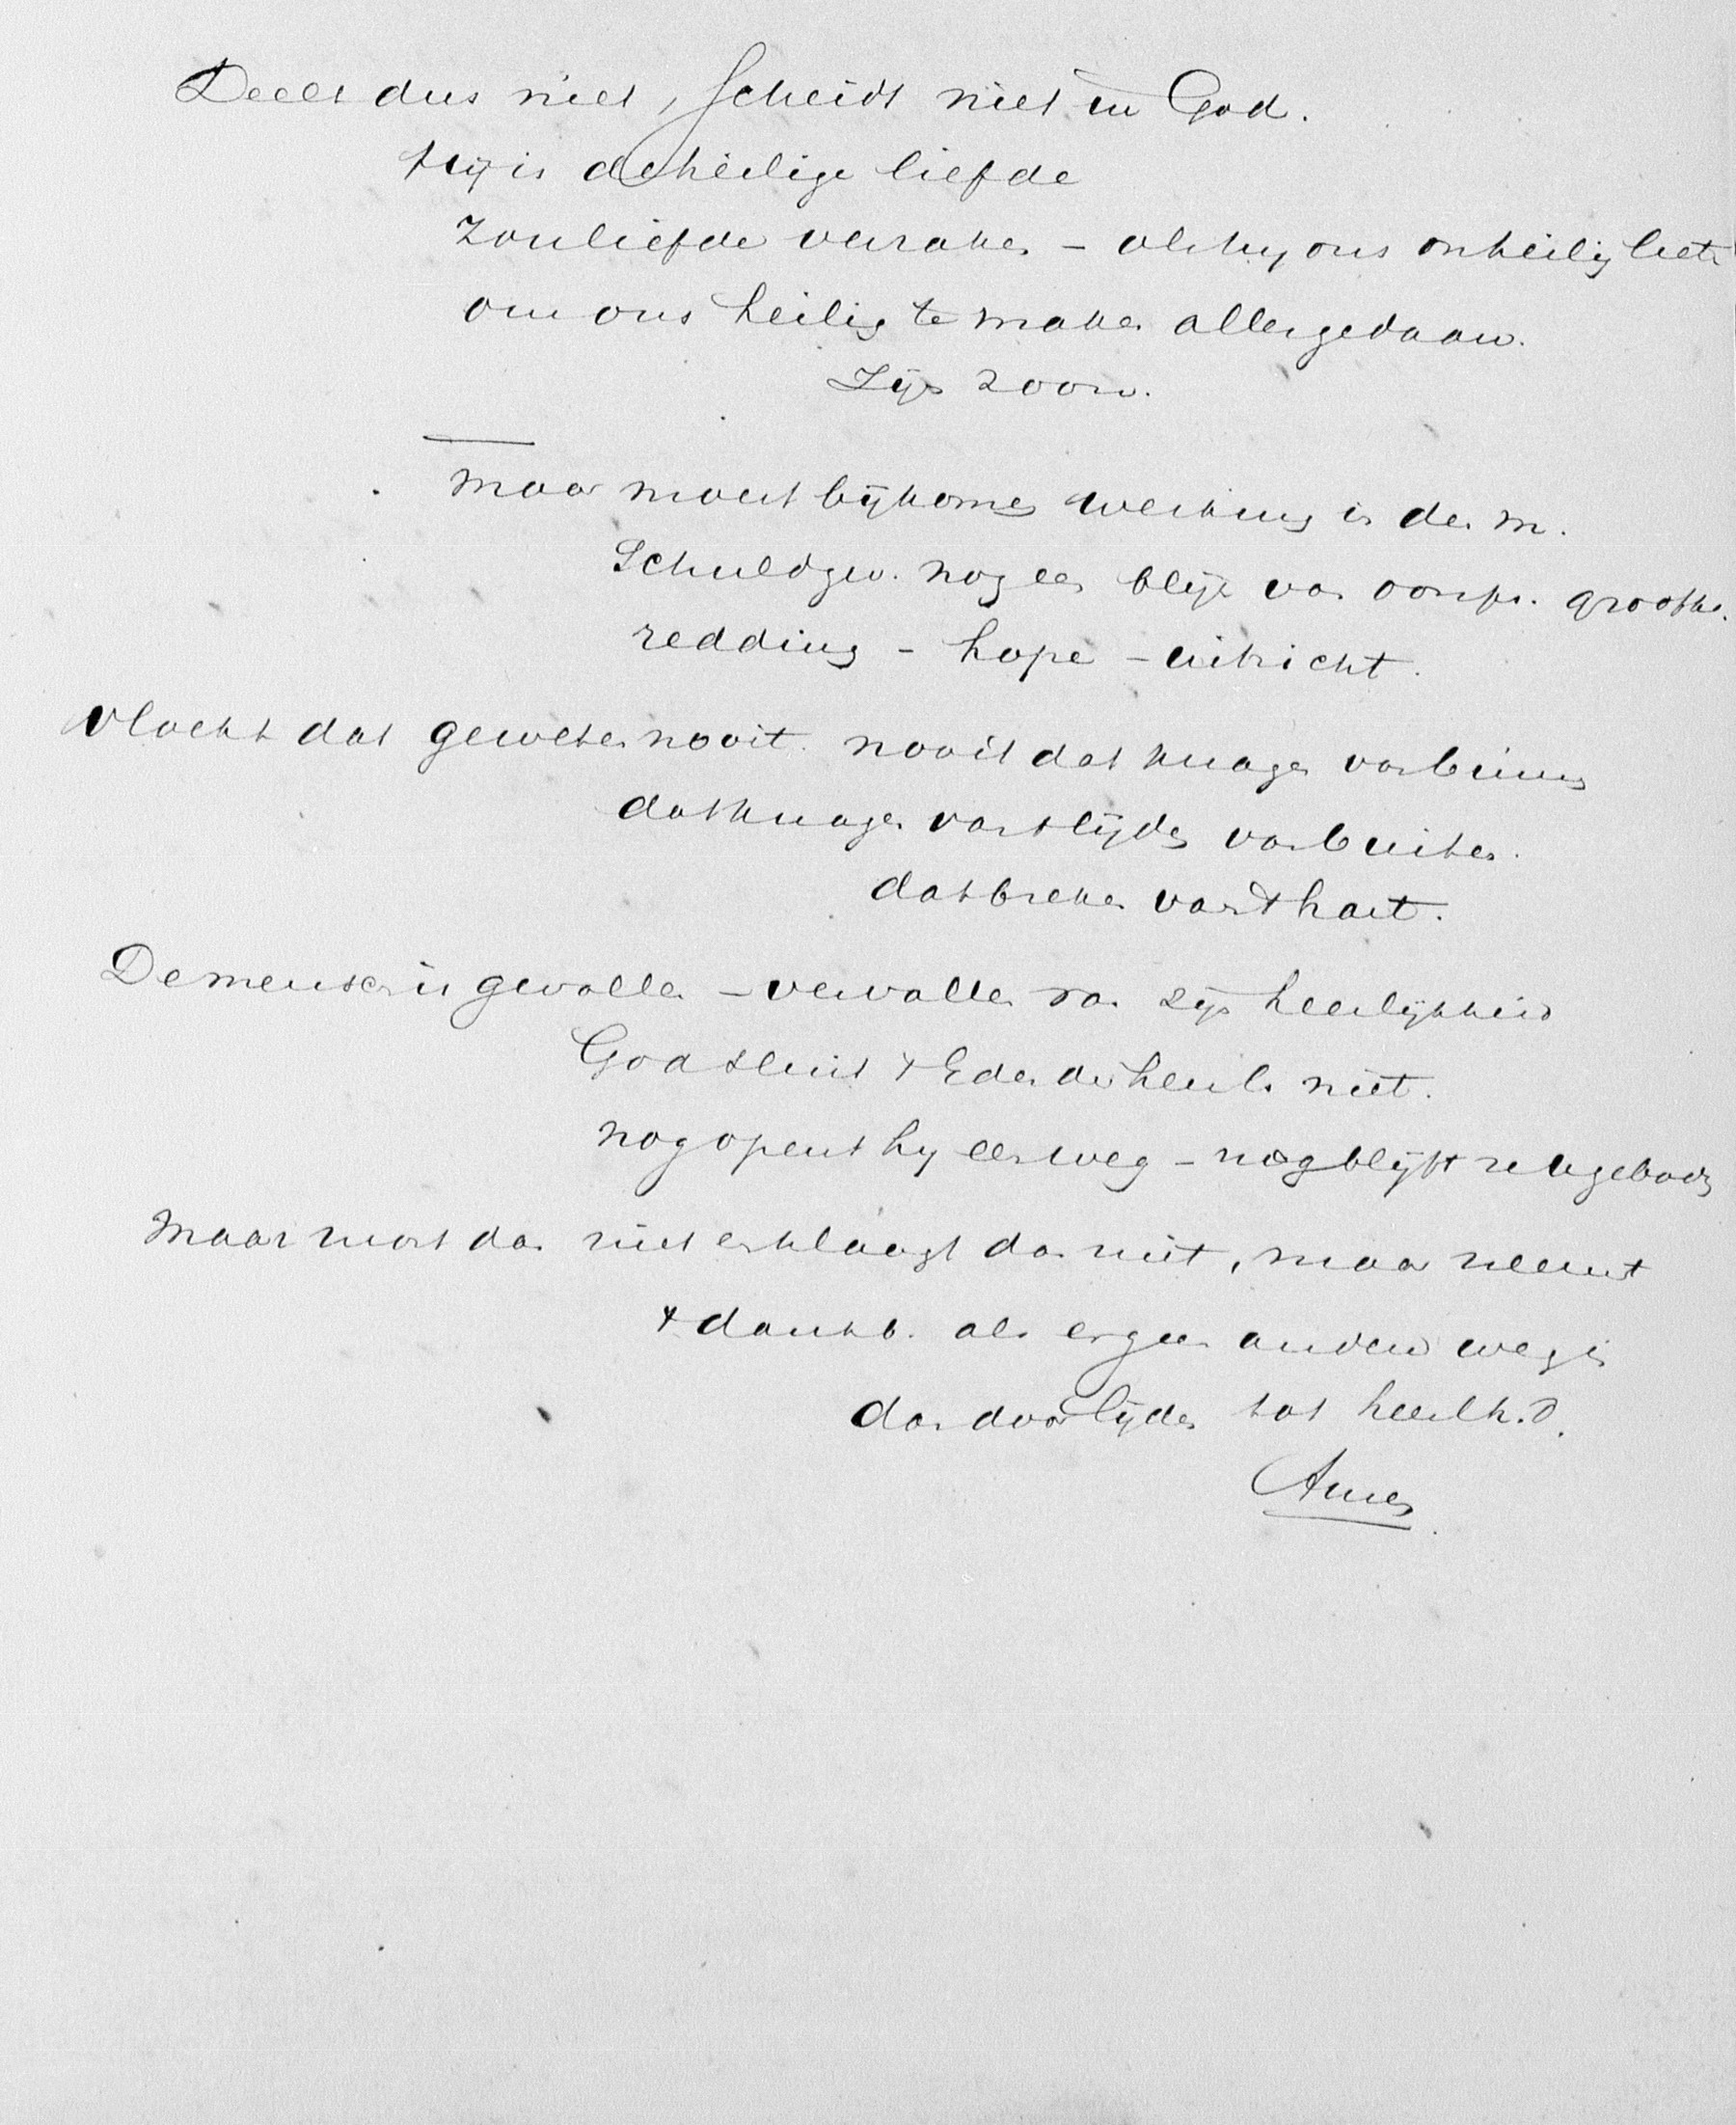 Deelt dus niet, scheidt niet in God.
Hij is de heilige liefde
Zou liefde verzaken – als hy ons onheilig liet
om ons heilig te maken alles gedaan.
Zijn zoon.
Maar moet bijkomen werking in den m.
Schuldgev. nog een blijk van oorspr. grooth.
redding – hope – uitzicht.
Vloekt dat geweten nooit. nooit dat knagen van binnen
dat knagen van 't lijden van buiten.
dat breken van 't hart.
De mensch is gevallen – vervallen van zijn heerlijkheid
God sluit 't Eden der heerl. niet.
nog opent hy een weg – nog blijft
Maar mort dan niet en klaagt dan niet, maar neemt
't dankb. als er geen anderen weg is
dan door lijden tot heerlh.d.
Amen